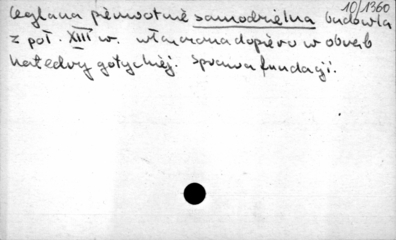 10/1360
Ceglana pierwotnie samodzielna budowla
z poł. XIII w. włączona dopiero w obręb
katedry gotyckiej. Sprawa fundacji.